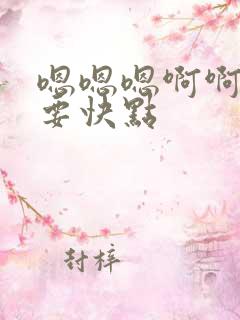 嗯嗯嗯啊啊
要快點
封梓